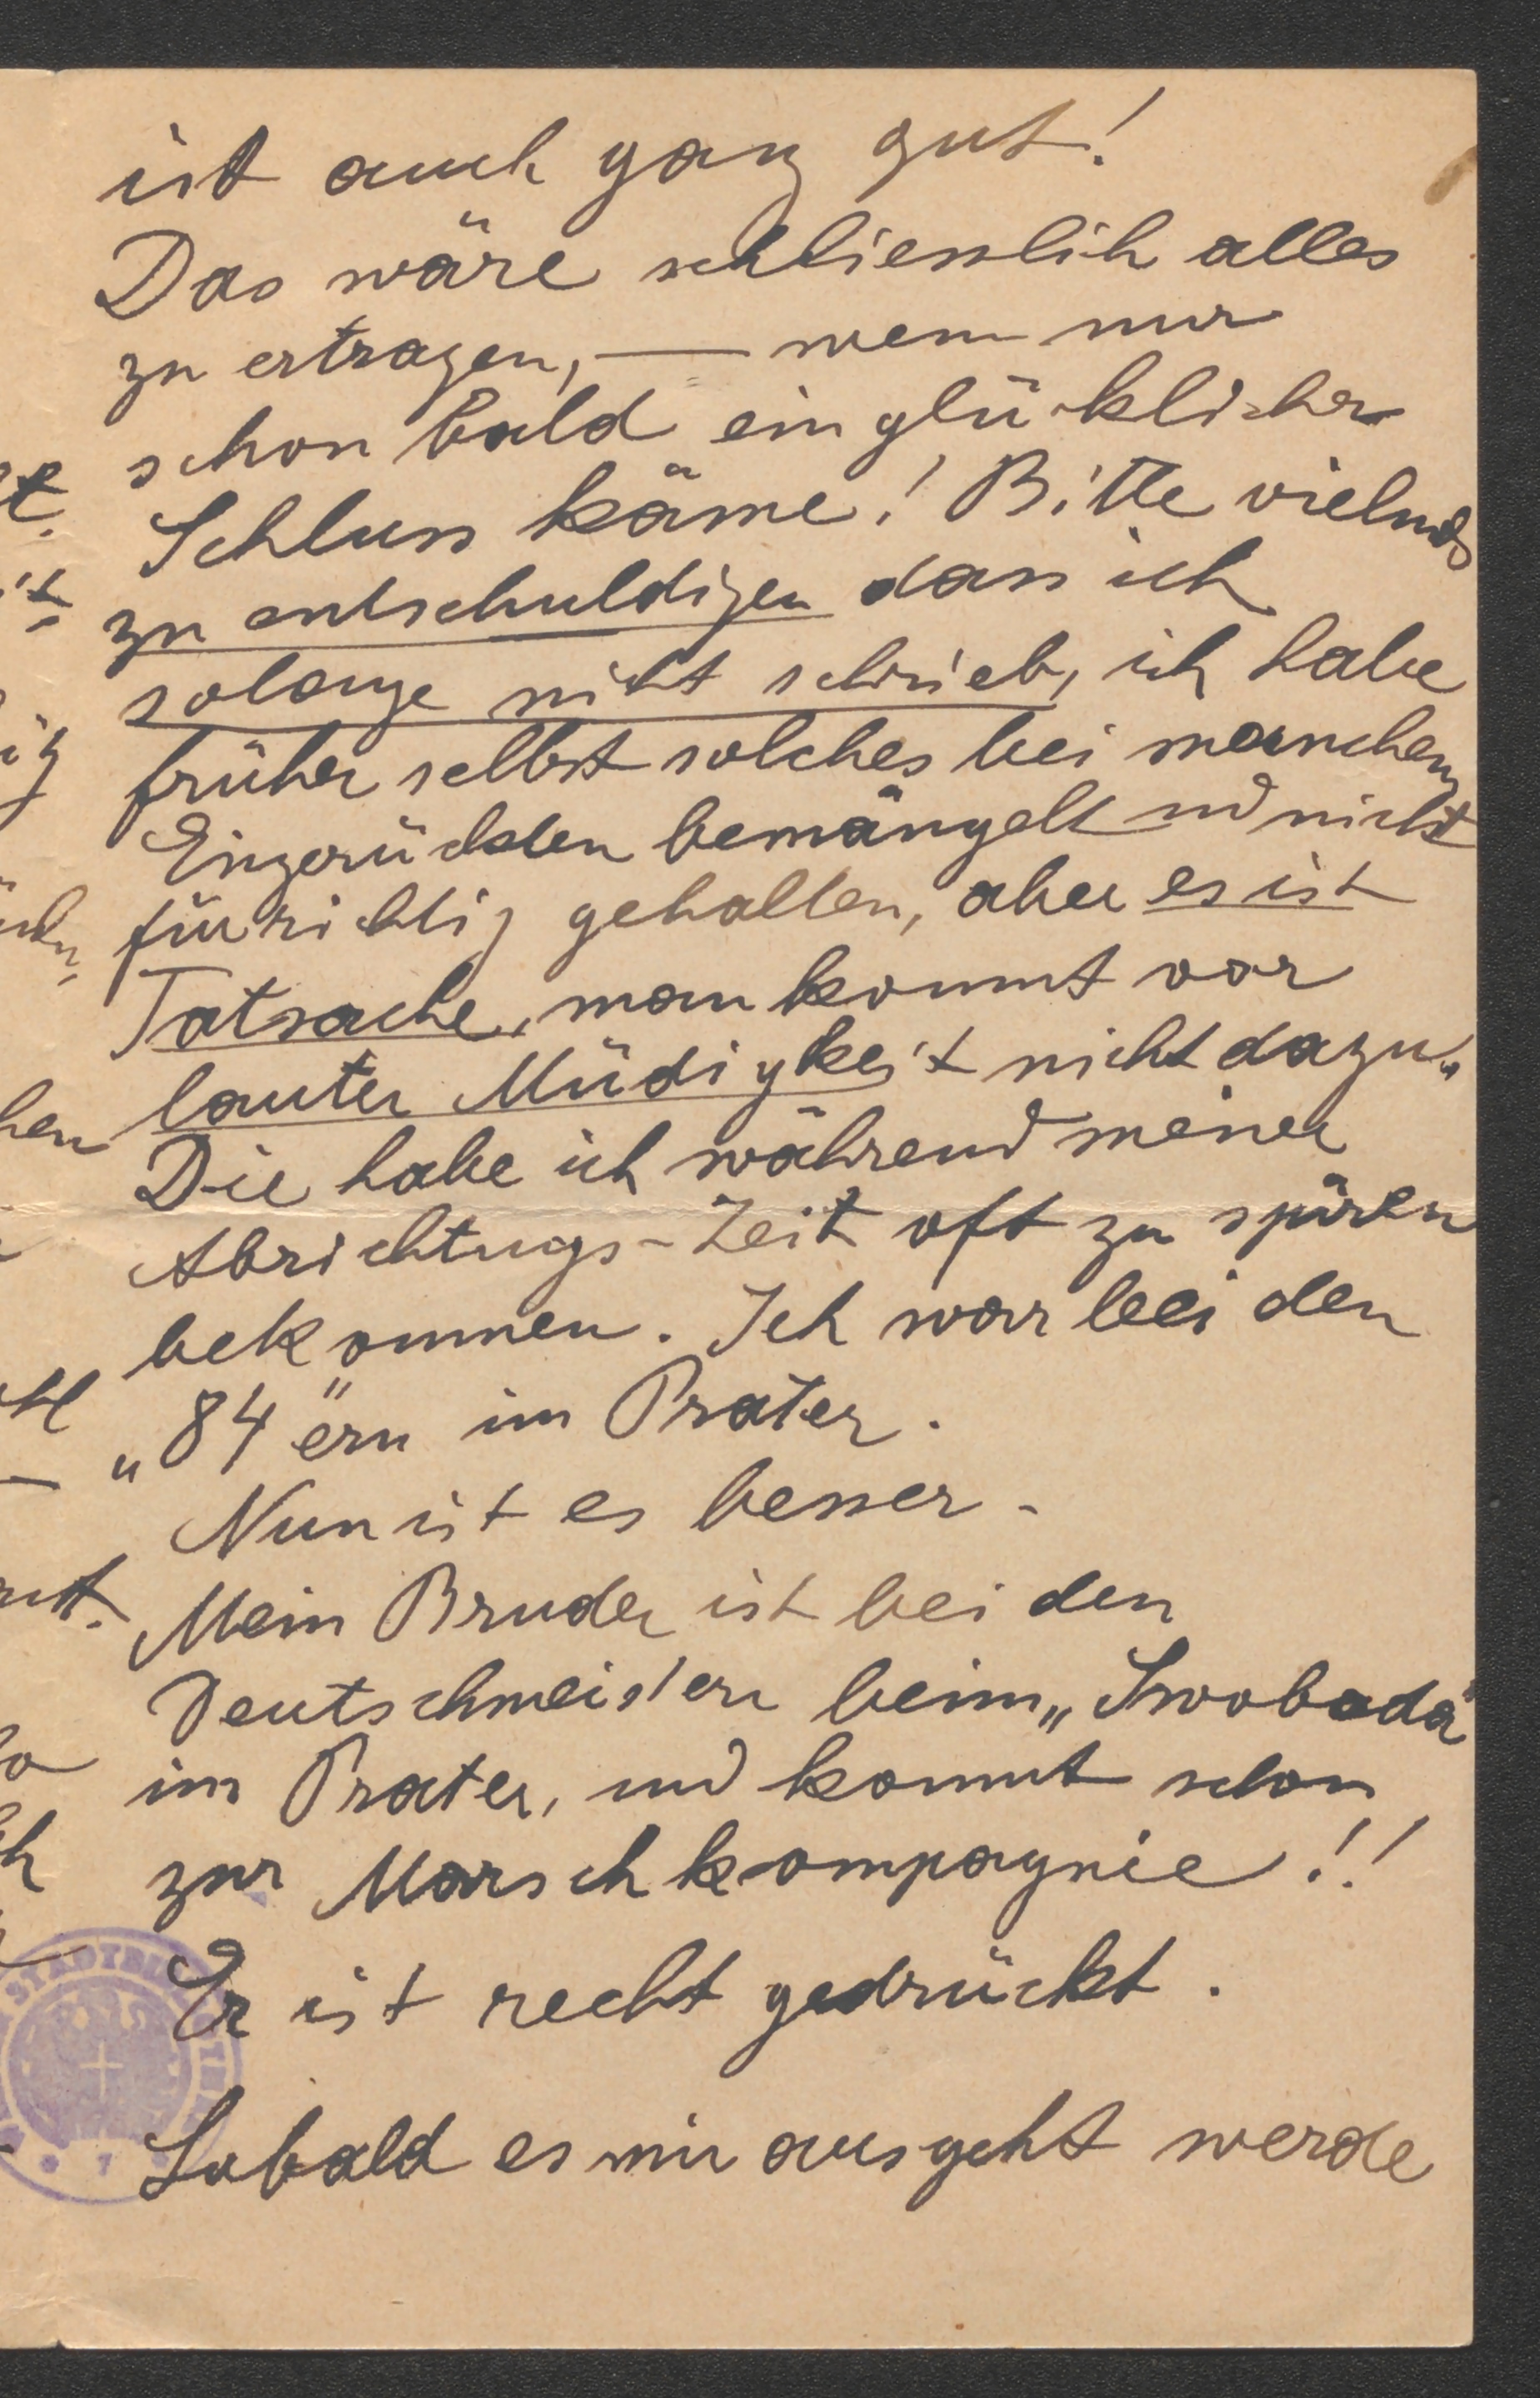 ist auch ganz gut!
Das wäre schliesslich alles
zu ertragen, — wenn nur
schon bald ein glücklicher
Schluss käme! Bitte vielmals
zu entschuldigen dass ich
solange nicht schrieb, ich habe
früher selbst solches bei manchem
Eingerückten bemängelt und nicht
für richtig gehalten, aber es ist
Tatsache, man kommt vor
lauter Müdigkeit nicht dazu.
Die habe ich während meiner
Abrichtungs-Zeit oft zu spüren
bekommen. Ich war bei den
„84"ern im Prater.
Nun ist es besser.
Mein Bruder ist bei den
Deutschmeistern beim „Swoboda"
im Prater, und kommt schon
zur Marschkompagnie!!
Er ist recht gedrückt.
Sobald es mir ausgeht werde